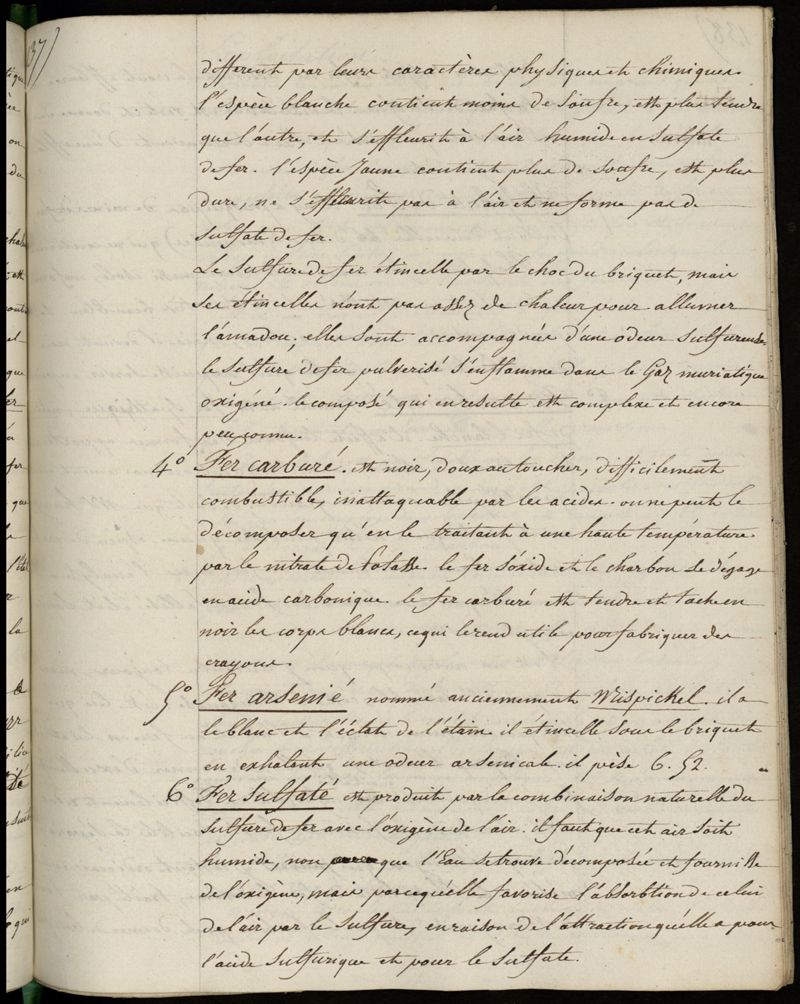 37)
different par leurs caractères physiques et chimiques.
l'espèce blanche contient moins de soufre, est plus tendre
que l'autre, et s'effleurit à l'air humide en sulfate
de fer. l'espèce Jaune contient plus de soufre, est plus
dure, ne s'effleurit pas à l'air et ne forme pas de
sulfate de fer.
Le sulfure de fer étincelle par le choc du briquet, mais
ses étincelles n'ont pas assez de chaleur pour allumer
l'amadou, elles sont accompagnées d'une odeur sulfureuse
le sulfure de fer pulverisé s'enflamme dans le Gaz muriatique
oxigéné. le composé qui en resulte est complexe et encore
peu connu.
4° Fer carburé. est noir, doux au toucher, difficilement
combustible, inattaquable par les acides. on ne peut le
décomposer qu'en le traitant à une haute température
par le nitrate de Potasse. le fer s'oxide et le charbon se dégage
en acide carbonique. le fer carburé est tendre et tache en
noir les corps blancs, ce qui le rend utile pour fabriquer des
crayons.
5° Fer arsenié nommé anciennement Mispickel. il a
le blanc et l'éclat de l'étain. il étincelle sous le briquet
en exhalent une odeur arsenicale. il pèse 6.52.
6° Fer sulfaté est produit par la combinaison naturelle du
sulfure de fer avec l'oxigène de l'air. il faut que cet air soit
humide, non que l'Eau se trouve décomposée et fournisse
de l'oxigène, mais parcequ'elle favorise l'absorbtion de celui
de l'air par le sulfure, en raison de l'attraction qu'elle a pour
l'acide sulfurique et pour le sulfate.